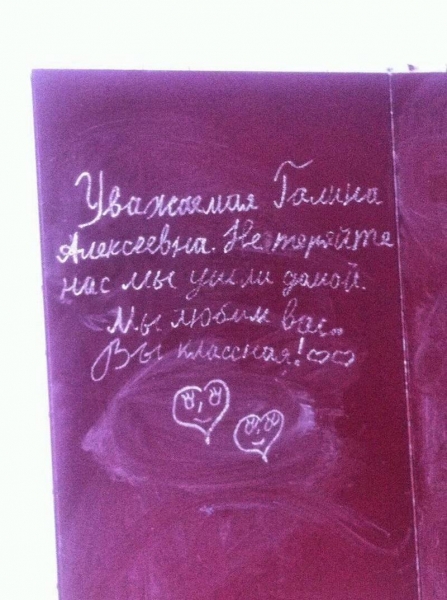 Уважаемая Галина
Алексеевна. Не теряйте
нас мы ушли домой.
Мы любим вас..
Вы классная!♡♡